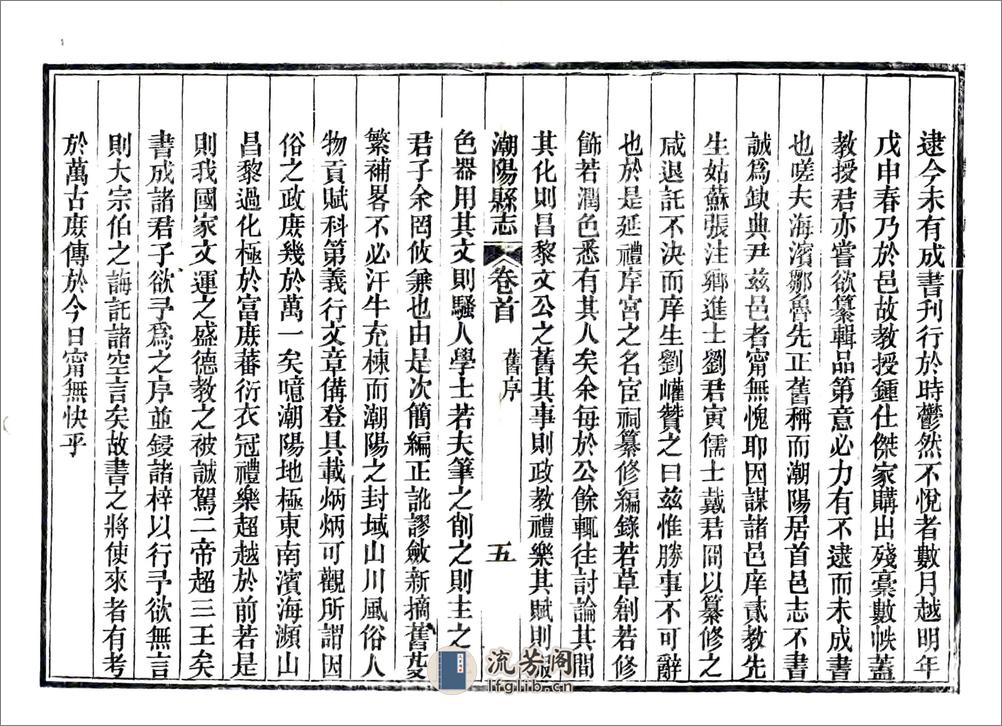 逮今未有成書刊行於時鬱然不悅者數月越明年
戊申春乃於邑故教授鍾仕傑家購出殘稾數帙蓋
教授君亦嘗欲纂輯品第意必力有不逮而未成書
也嗟夫海濱鄒魯先正舊稱而潮陽居首邑志不書
誠爲缺典尹茲邑者甯無愧耶因謀諸邑庠貳教先
生姑蘇張注鄉進士劉君寅儒士戴君冏以纂修之
咸退託不決而庠生劉巏贊之曰茲惟勝事不可辭
也於是延禮庠宮之名宦祠纂修編錄若草創若修
飾若潤色悉有其人矣余每於公餘輒往討論其間
其化則昌黎文公之舊其事則政教禮樂其賦則服
潮陽縣志 卷首 舊序 五
色器用其文則騷人學士若夫筆之削之則主之
君子余罔攸兼也由是次簡編正訛謬斂新摘舊芟
繁補畧不必汗牛充棟而潮陽之封域山川風俗人
物貢賦科第義行文章備登具載炳炳可觀所謂因
俗之政庶幾於萬一矣噫潮陽地極東南濱海瀕山
昌黎過化極於富庶蕃衍衣冠禮樂超越於前若是
則我國家文運之盛德教之被誠駕二帝超三王矣
書成諸君子欲予爲之序並鋟諸梓以行予欲無言
則大宗伯之誨託諸空言矣故書之將使來者有考
於萬古庶傳於今日甯無快乎
流芳阁
lfglib.cn